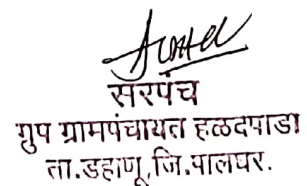 सरपंच
ग्रुप ग्रामपंचायत हळदपाडा
ता.डहाणू,जि.पालघर.